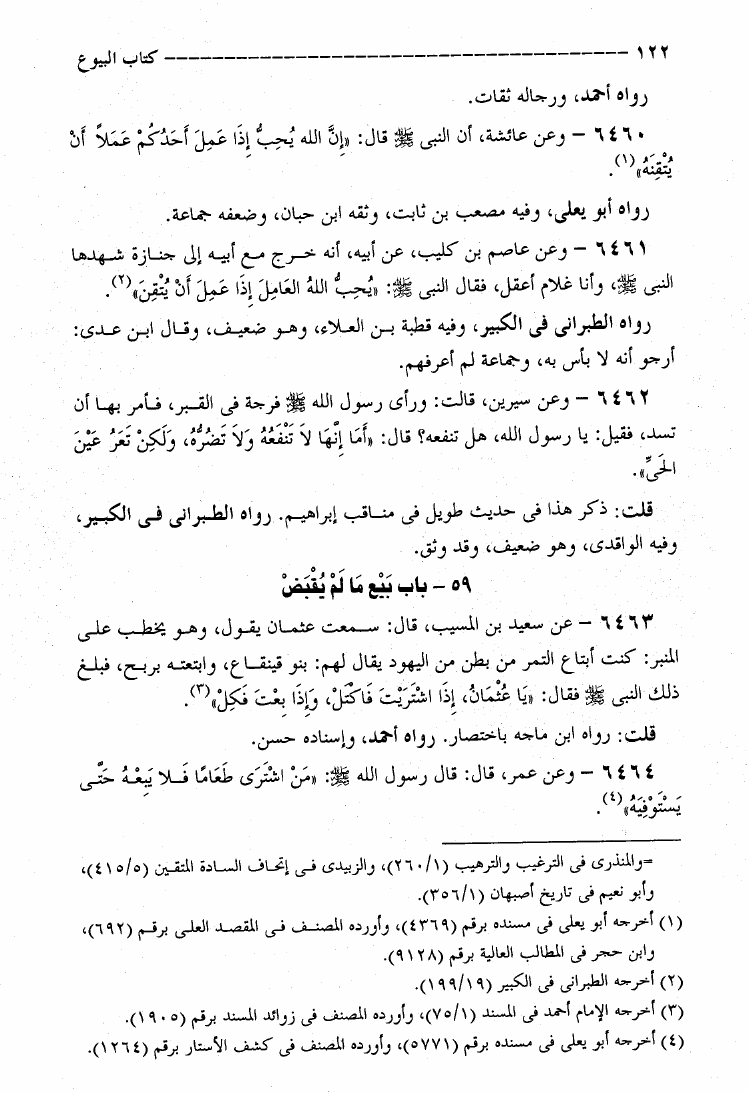 ١٢٢ ------------------------------------------- كتاب البيوع
رواه أحمد، ورجاله ثقات.
٦٤٦٠ – وعن عائشة، أن النبى ﷺ قال: «إِنَّ الله يُحِبُّ إِذَا عَمِلَ أَحَدُكُمْ عَمَلاً أَنْ
يُتْقِنَهُ»(١).
رواه أبو يعلى، وفيه مصعب بن ثابت، وثقه ابن حبان، وضعفه جماعة.
٦٤٦١ – وعن عاصم بن كليب، عن أبيه، أنه خرج مع أبيه إلى جنازة شهدها
النبى ﷺ، وأنا غلام أعقل، فقال النبى ﷺ: «يُحِبُّ اللهُ العَامِلَ إِذَا عَمِلَ أَنْ يُتْقِنَ»(٢).
رواه الطبرانى فى الكبير، وفيه قطبة بن العلاء، وهو ضعيف، وقال ابن عدى:
أرجو أنه لا بأس به، وجماعة لم أعرفهم.
٦٤٦٢ – وعن سيرين، قالت: ورأى رسول الله ﷺ فرجة فى القبر، فأمر بها أن
تسد، فقيل: يا رسول الله، هل تنفعه؟ قال: «أَمَا إِنَّهَا لاَ تَنْفَعُهُ وَلاَ تَضُرُّهُ، وَلَكِنْ تَعَرُ عَيْنَ
الحَىِّ».
قلت: ذكر هذا فى حديث طويل فى مناقب إبراهيم. رواه الطبرانى فى الكبير،
وفيه الواقدى، وهو ضعيف، وقد وثق.
٥٩ – باب بَيْعِ مَا لَمْ يُقْبَضْ
٦٤٦٣ – عن سعيد بن المسيب، قال: سمعت عثمان يقول، وهو يخطب على
المنبر: كنت أبتاع التمر من بطن من اليهود يقال لهم: بنو قينقاع، وابتعته بربح، فبلغ
ذلك النبى ﷺ فقال: «يَا عُثْمَانُ، إِذَا اشْتَرَيْتَ فَاكْتَلْ، وَإِذَا بِعْتَ فَكِلْ»(٣).
قلت: رواه ابن ماجه باختصار. رواه أحمد، وإسناده حسن.
٦٤٦٤ – وعن عمر، قال: قال رسول الله ﷺ: «مَنْ اشْتَرَى طَعَامًا فَلا يَبِعْهُ حَتَّى
يَسْتَوْفِيَهُ»(٤).
=والمنذرى فى الترغيب والترهيب (٢٦٠/١)، والزبيدى فى إتحاف السادة المتقين (٤١٥/٥)،
وأبو نعيم فى تاريخ أصبهان (٣٥٦/١).
(١) أخرجه أبو يعلى فى مسنده برقم (٤٣٦٩)، وأورده المصنف فى المقصد العلى برقم (٦٩٢)،
وابن حجر فى المطالب العالية برقم (٩١٢٨).
(٢) أخرجه الطبرانى فى الكبير (١٩٩/١٩).
(٣) أخرجه الإمام أحمد فى المسند (٧٥/١)، وأورده المصنف فى زوائد المسند برقم (١٩٠٥).
(٤) أخرجه أبو يعلى فى مسنده برقم (٥٧٧١)، وأورده المصنف فى كشف الأستار برقم (١٢٦٤).